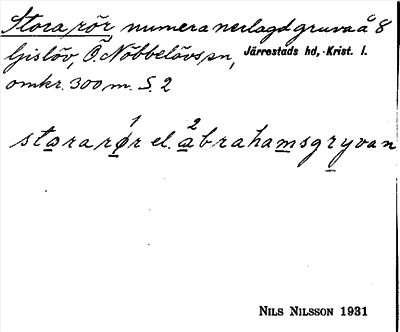 Stora rör numera nerlagd gruva å 8
Gislöv, Ö. Nöbbelövs sn, Järrestads hd, Krist. l.
omkr. 300 m. S. 2
1 2
stora rør el. abrahamsgryvan
NILS NILSSON 1931